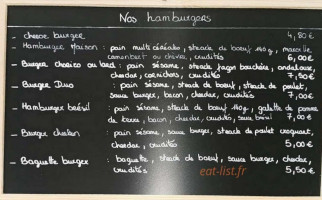 Nos hamburgers
- cheese burger 4,80 €
- Hamburger maison : pain multi céréales, steack de boeuf 140g, 
camembert ou chèvre, crudités 6,00 €
- Burger chorizo ou lard : pain sésame, steack façon bouchère, andalouse,
cheddar, cornichons, crudités 7,50 €
- Burger Duo : pain sésame, steack de boeuf, steack de poulet,
sauce burger, bacon, cheddar, crudités 7,00 €
- Hamburger brésil : pain sésame, steack de boeuf 140g, galette de pomme
de terre, bacon, cheddar, crudités, sauce brésil 7,00 €
- Burger chicken : pain sésame, sauce burger, steack de poulet croquant,
cheddar, crudités 5,00 €
- Baguette burger : baguette, steack de boeuf, sauce burger, cheddar,
crudités 5,50 €
eat-list.fr